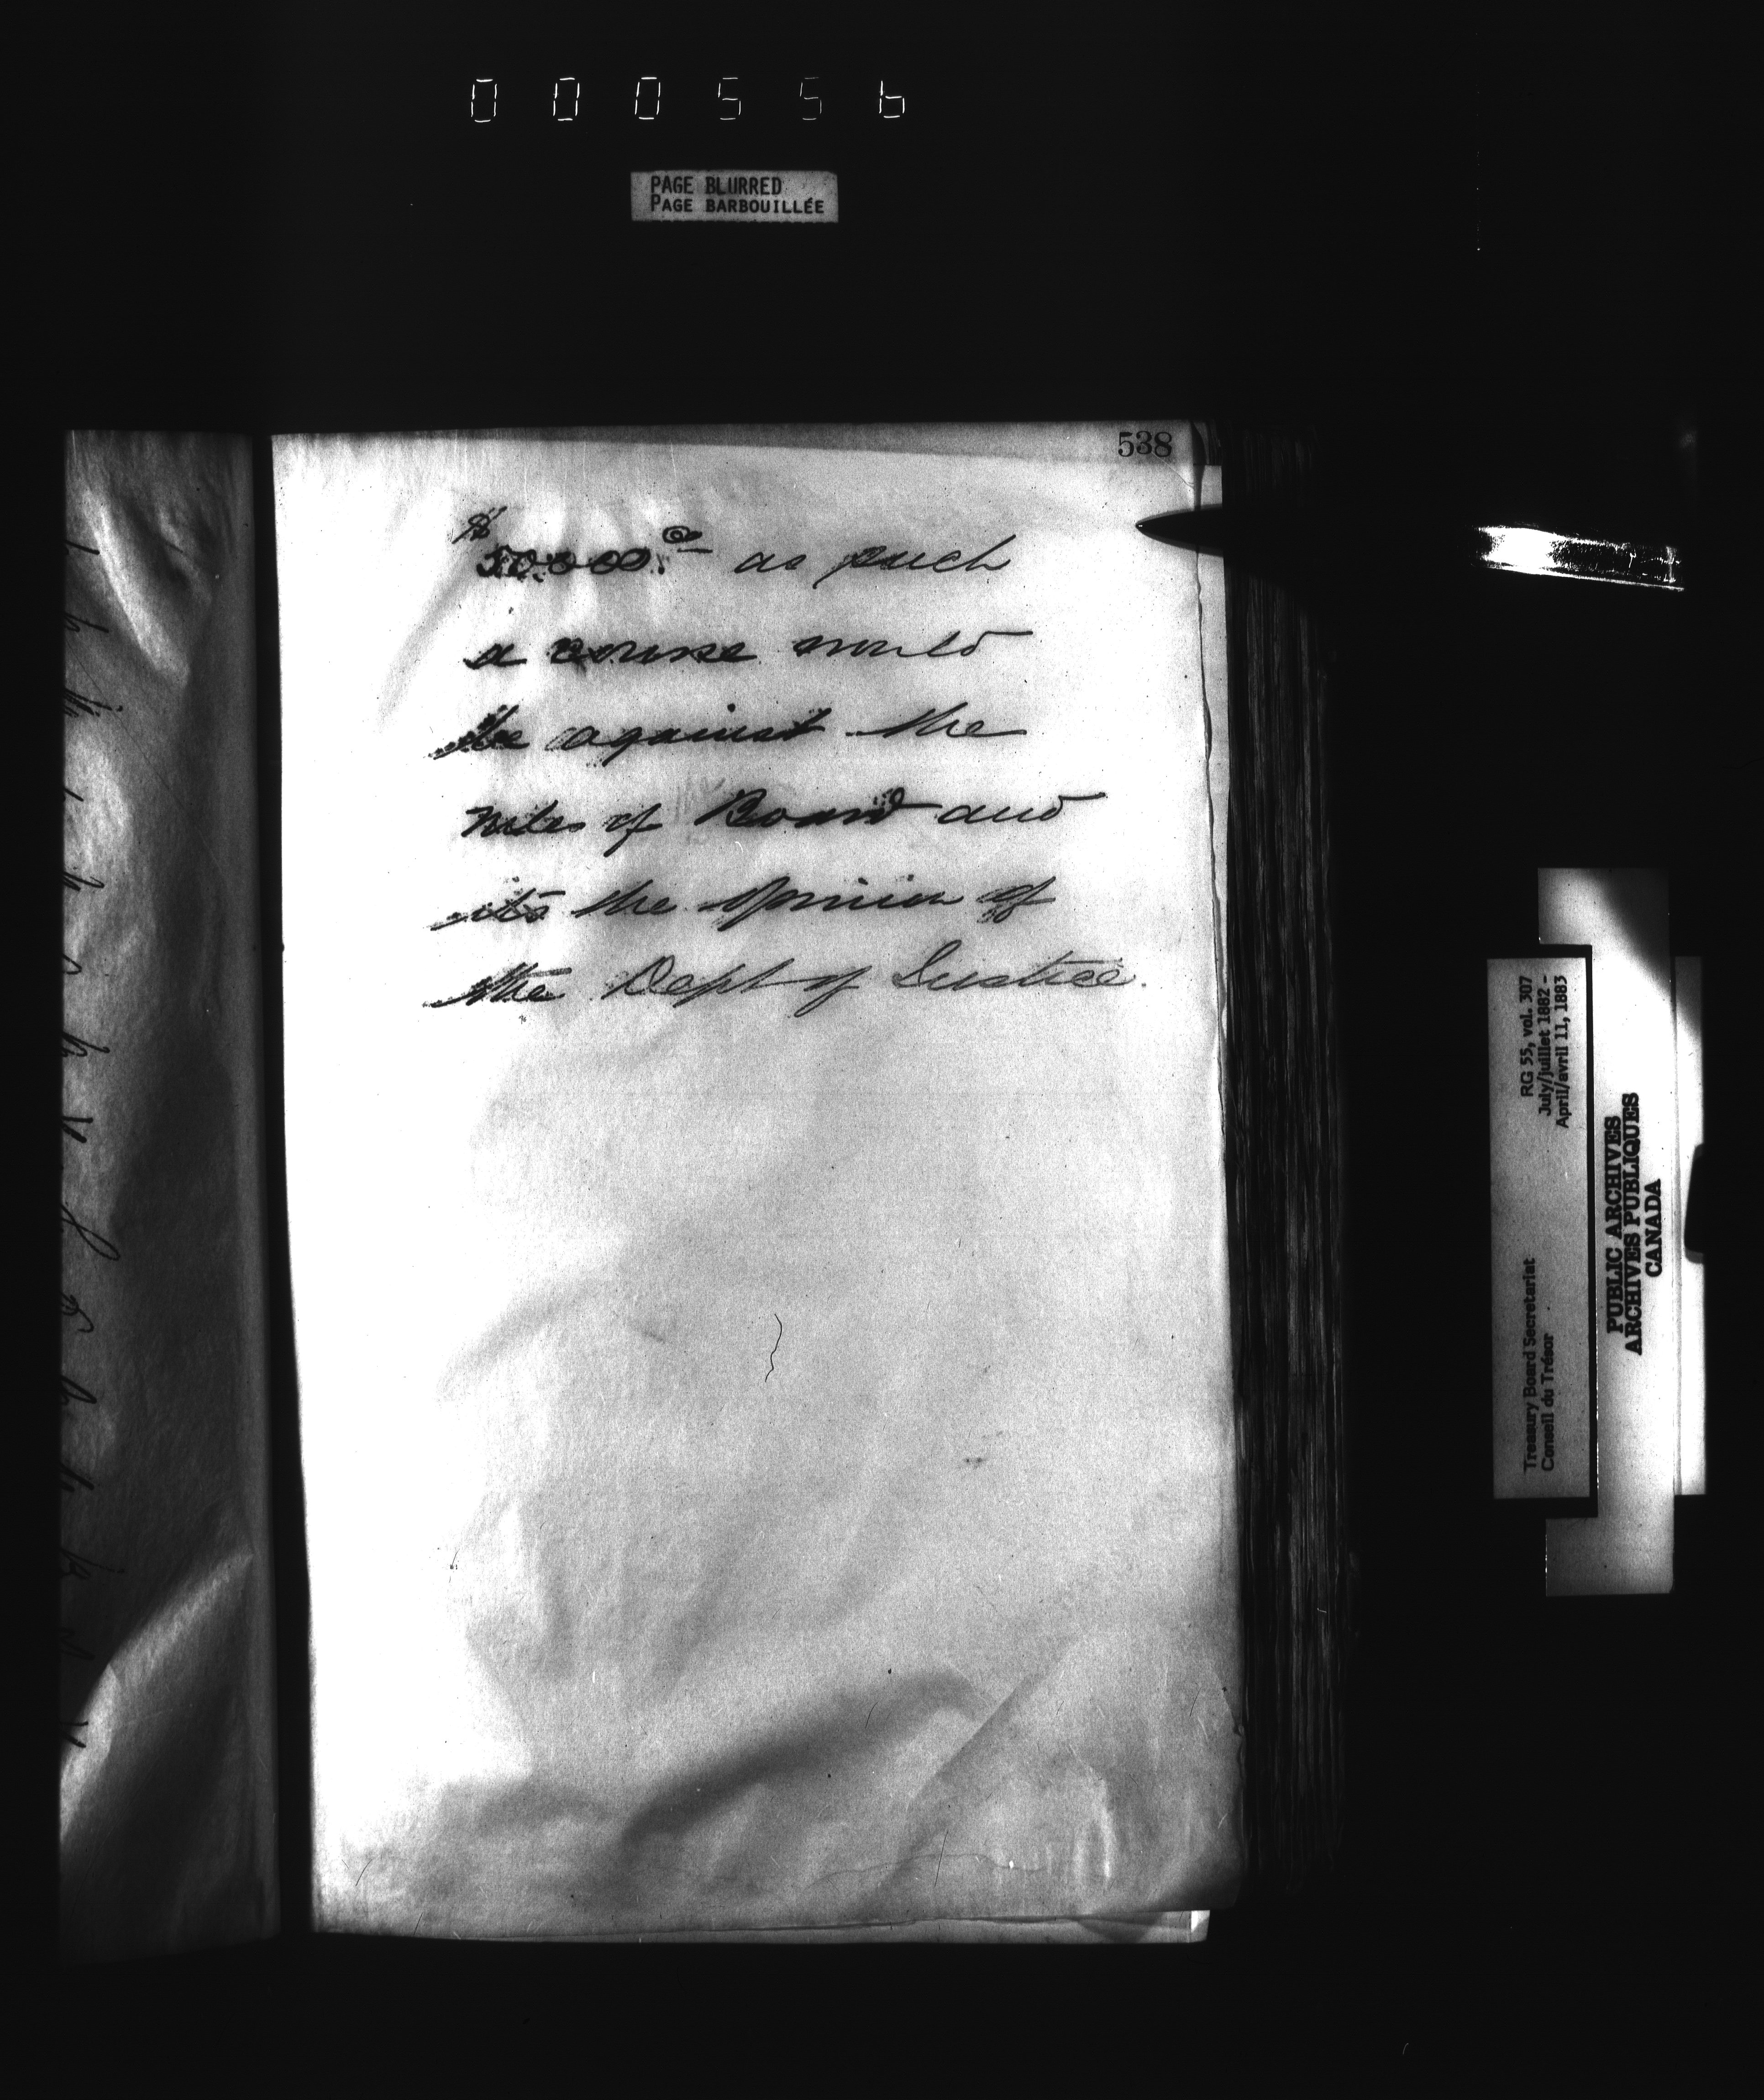 000556
PAGE BLURRED
PAGE BARBOUILLÉE
538
$50.000.00 as such
a course would
be against the
rules of Board and
its the opinion of
the Dept of Justice.
RG 55, vol. 307
July/juillet 1882 -
April/avril 11, 1883
Treasury Board Secretariat
Conseil du Trésor
PUBLIC ARCHIVES
ARCHIVES PUBLIQUES
CANADA